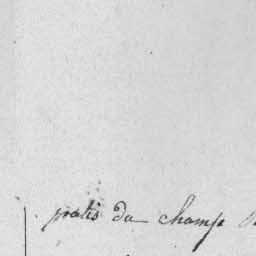 pratis du champs